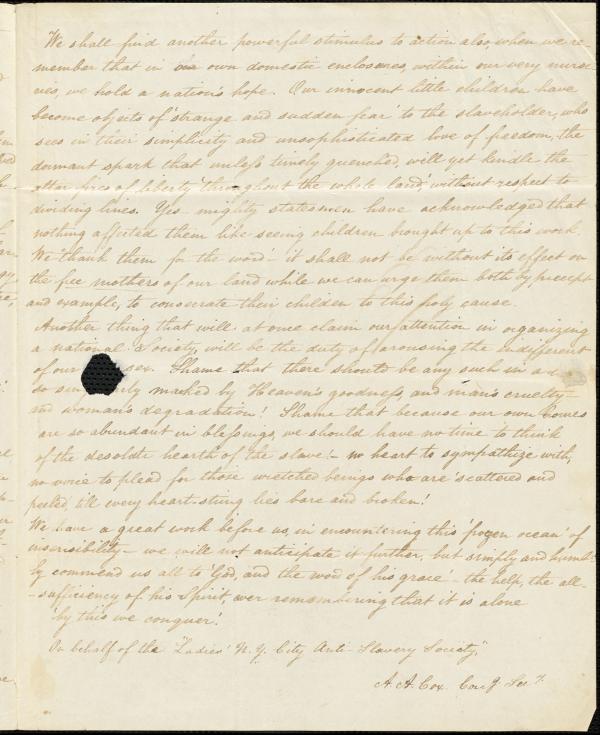 We shall find another powerful stimulus to action also, when we re-
member that in our own domestic enclosures, within our very nurse-
ries, we hold a nation's hope. Our innocent little children have
become objects of 'strange and sudden fear' to the slaveholder, who
sees in their simplicity and unsophisticated love of freedom, the
dormant spark that unless timely quenched, will yet kindle the
altar fires of liberty 'throughout the whole land' without respect to
dividing lines. Yes - mighty statesmen have acknowledged that
nothing affected them like seeing children brought up to this work.
We thank them for the word - it shall not be without its effect on
the free mothers of our land while we can urge them both by precept
and example, to consecrate their children to this holy cause.
Another thing that will at once claim our attention in organizing
a national Society, will be the duty of arousing the indifferent
of our sex. Shame that there should be any such in a
so marked by Heaven's goodness, and man's cruelty -
and woman's degradation! Shame that because our own homes
are so abundant in blessings, we should have no time to think
of the desolate hearth of the slave! - no heart to sympathize with,
no voice to plead for those wretched beings who are scattered and
peeled, till every heart-string lies bare and broken!
We have a great work before us, in encountering this 'frozen ocean' of
insensibility - we will not anticipate it further, but simply and humb-
ly commend us all to 'God, and the word of his grace' - the help, the all-
-sufficiency of his Spirit, ever remembering that it is alone
'by this we conquer.'
On behalf of the "Ladies' N. Y. City Anti-Slavery Society,"
A. A. Cox. Cor.g Sec.y